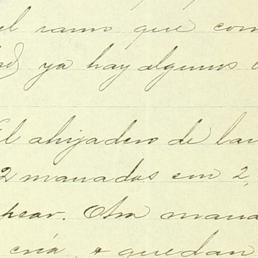 el ramo que com
ya hay algunos
El ahijadero de lan
2 manadas con 2,
pear. Otra mana
cría, y quedan